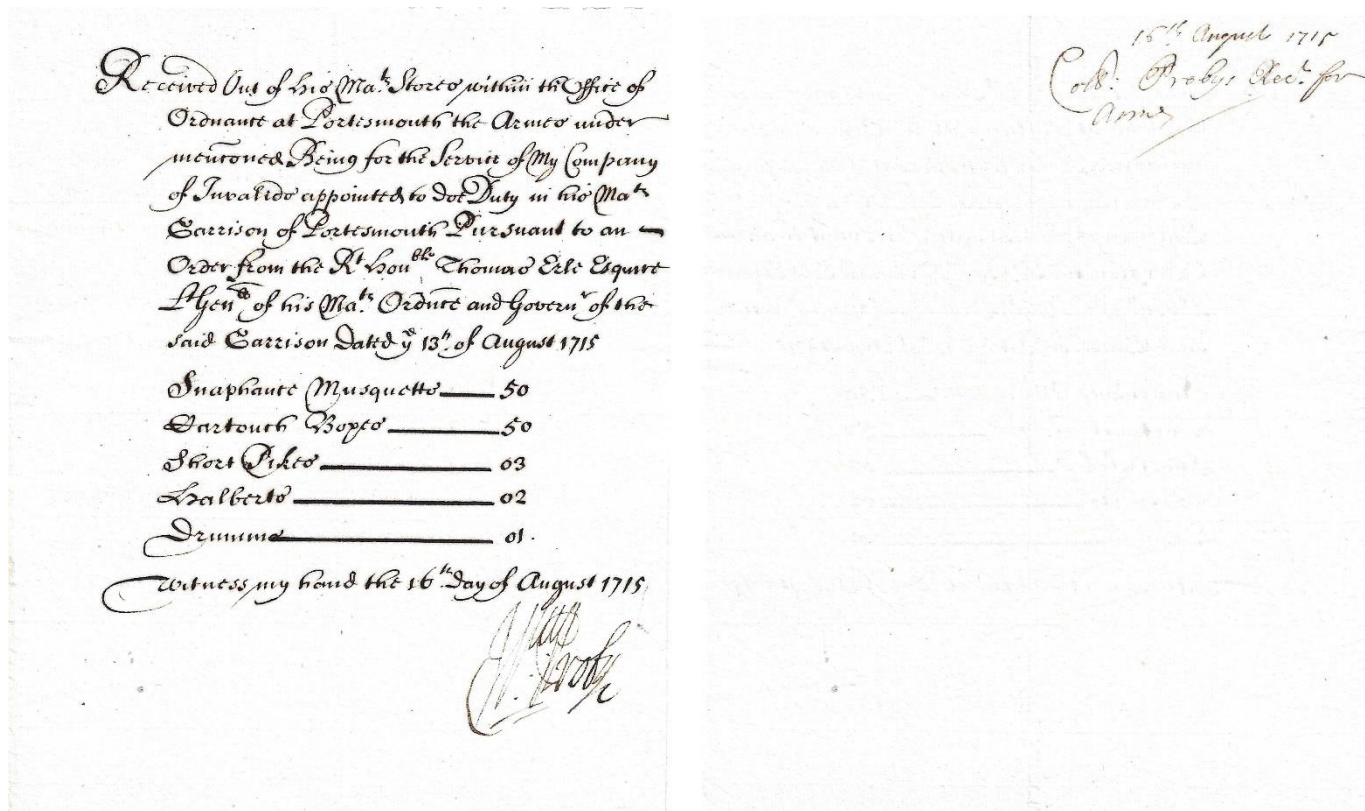 Received Out of his Ma.ts Stores within th Office of
Ordnance at Portesmouth the Armes under
mentioned Being for the Service of My Company
of Invalids appointed to doe Duty in his Ma.ts
Garrison of Portesmouth Pursuant to an —
Order from the Rt Honble Thomas Erle Esquire
Lt Genll of his Ma.ts Ordnce and Governr of the
said Garrison Dated ye 13th of August 1715
Snaphance Musquetts — 50
Cartouch Boxes — 50
Short Pikes — 03
Halberts — 02
Drumms — 01.
Witness my hand the 16th day of August 1715
Probye
16th August 1715
Coll: Probys Rect. for
Armes